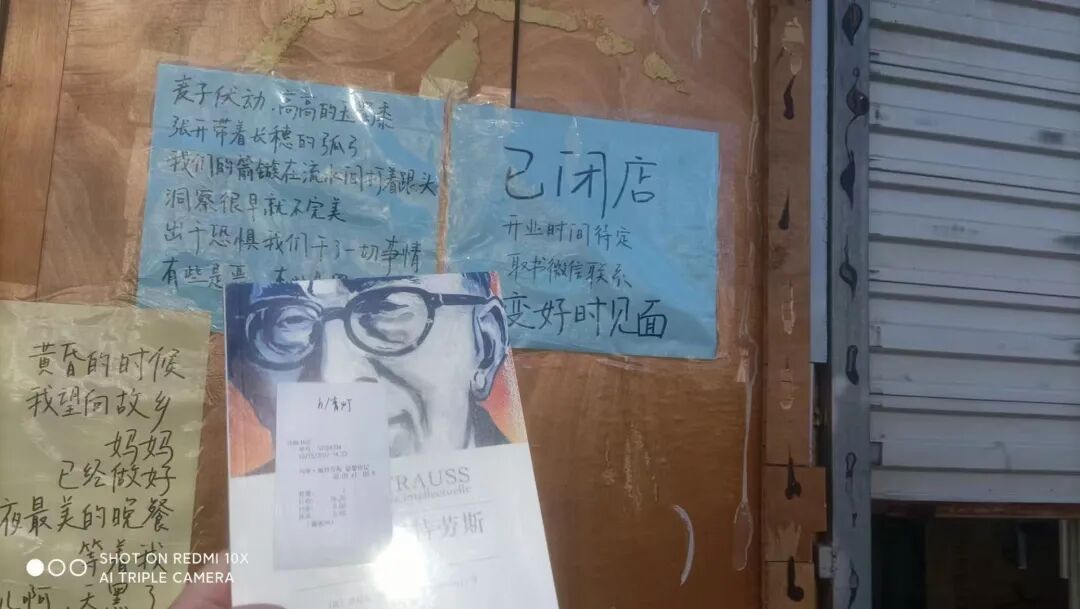 麦子伏动.高高的玉蜀黍
张开带着长穗的弧弓
我们的箭镞在流水间打着跟头
洞察很早就不完美
出于恐惧我们干了一切事情
有些是
已闭店
开业时间待定
取书微信联系
变好时见面
黄昏的时候
我望向故乡
妈妈
已经做好
夜最美的晚餐
等着我
儿啊.天黑了
TRAUSS
intellectuelle
特劳斯
SHOT ON REDMI 10X
AI TRIPLE CAMERA